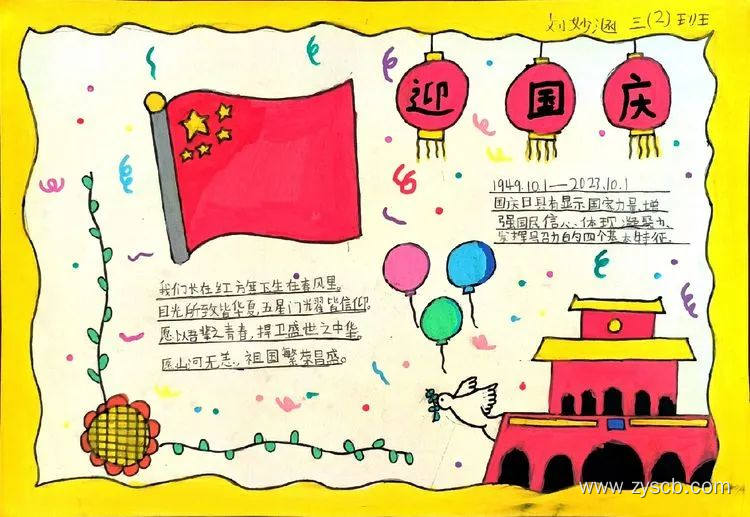 刘妙涵 三(2)班
迎国庆
1949.10.1—2023.10.1
国庆日具有显示国家力量、增
强国民信心、体现凝聚力、
发挥号召力的四个基本特征。
我们长在红旗下生在春风里。
目光所致皆华夏,五星闪耀皆信仰。
愿以吾辈之青春,捍卫盛世之中华。
愿山河无恙,祖国繁荣昌盛。
www.zyscb.com